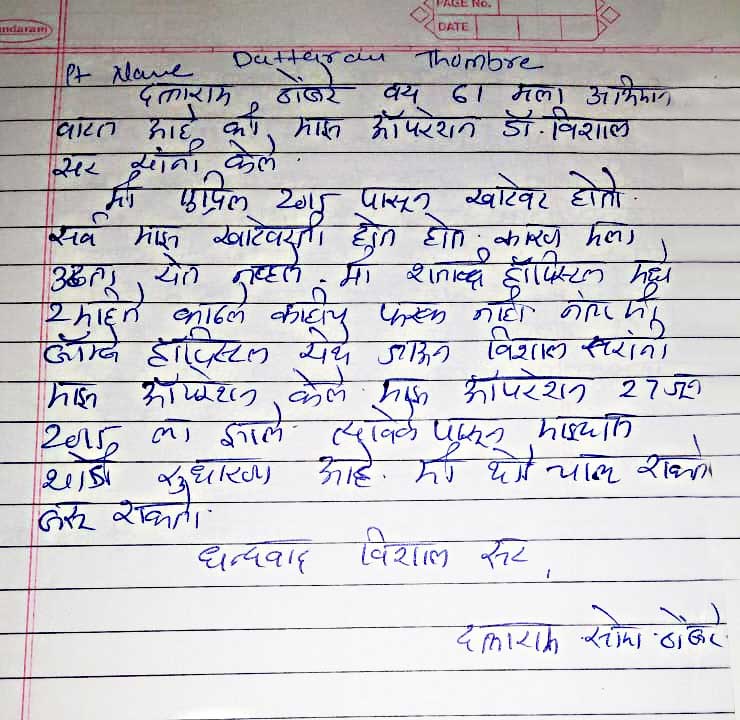 PAGE No.
DATE
ndaram
Pt Name Dattaram Thombre
दत्ताराम ठोंबरे वय 61 मला अभिमान
वाटत आहे की, माझ ऑपरेशन डॉ. विशाल
सर यांनी केले.
मी एप्रिल 2015 पासून खाटेवर होतो.
सर्व माझ खाटेवरती होत होत. कारण मला
उठता येत नव्हते. मी शताब्दी हॉस्पिटल मध्ये
2 महिने काढले काहीच फरक नाही नंतर मी
हॉस्पिटल येथे जाऊन विशाल सरांनी
माझ ऑपरेशन केले. माझ ऑपरेशन 27 जून
2015 ला झाले. पासून माझ्यात
थोडी सुधारणा आहे. मी थोडे चालू शकतो
बसू शकतो.
धन्यवाद विशाल सर,
दत्ताराम सोमा ठोंबरे.